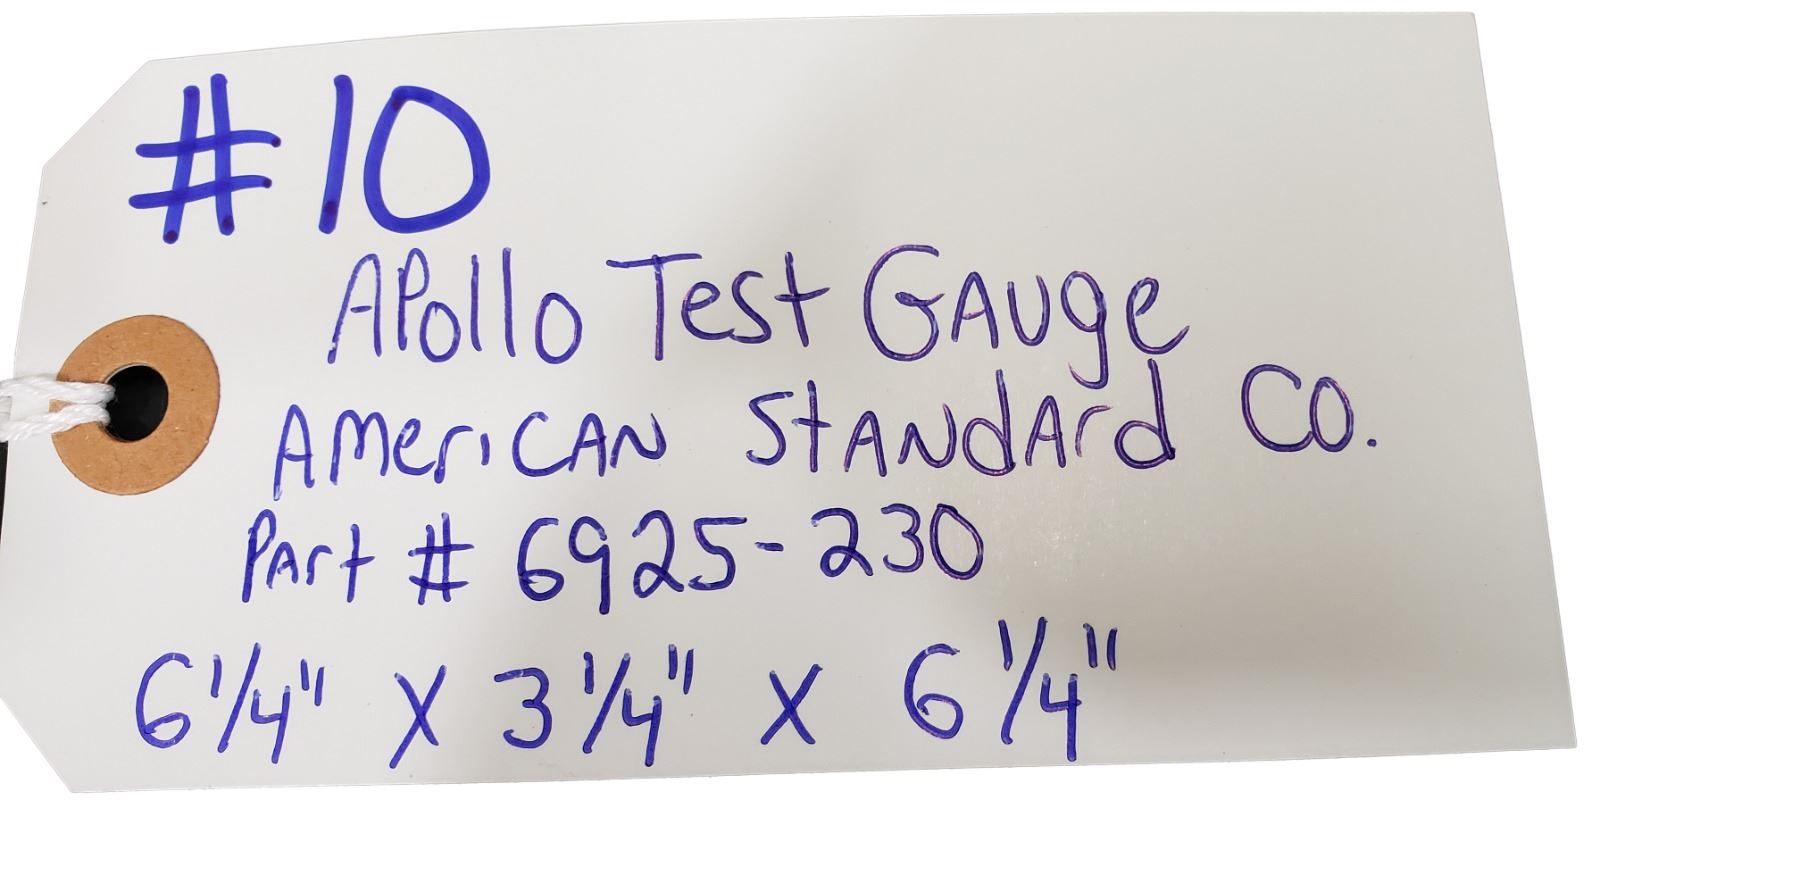 #10
Apollo Test Gauge
American Standard Co.
Part # 6925-230
6 1/4" X 3 1/4" X 6 1/4"